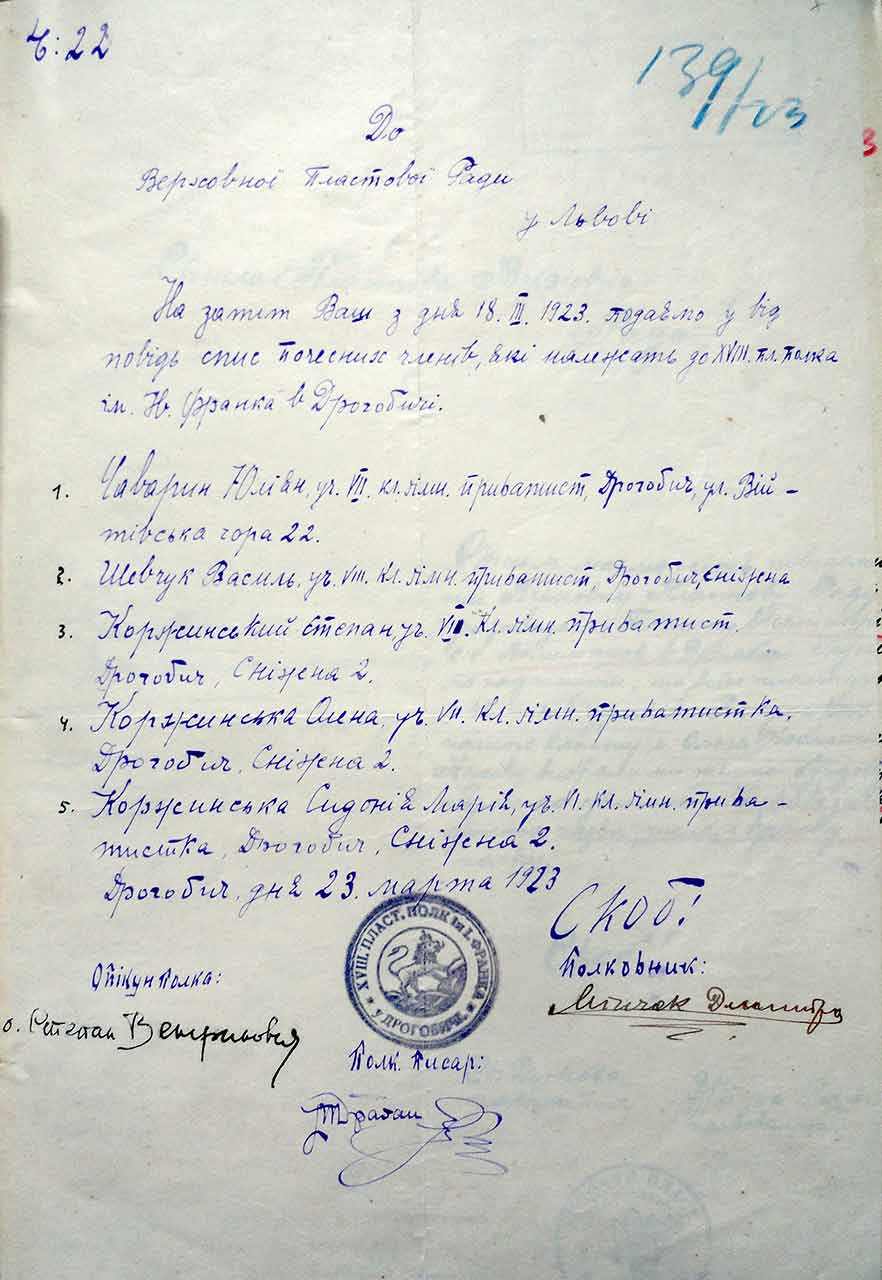 Ч: 22
139/23
До
Верховної Пластової Ради
у Львові
На запит Ваш з дня 18. III. 1923. подаємо у від
повідь спис почесних членів, які належать до XVIII. пл. полка
ім. Ів. Франка в Дрогобичі.
1. Чаварин Юліян, уч. VII. кл. гімн. приватист, Дрогобич, ул. Вій –
тівська гора 22.
2. Шевчук Василь, уч. VIII. кл. гімн. приватист, Дрогобич, Сніжна
3. Коржинський Степан, уч. кл. гімн. приватист.
Дрогобич, Сніжна 2.
4. Коржинська Олена, уч. VII. кл. гімн. приватистка,
Дрогобич, Сніжна 2.
5. Коржинська Сидонія Марія, уч. VI. кл. гімн. прива –
тистка, Дрогобич, Сніжна 2.
Дрогобич, дня 23. марта 1923
СКОБ!
XVIII. ПЛАСТ. ПОЛК ІМ І. ФРАНКА
У ДРОГОБИЧІ
Опікун полка:
Полковник:
о. Степан
Дмитро
Полк. писар: